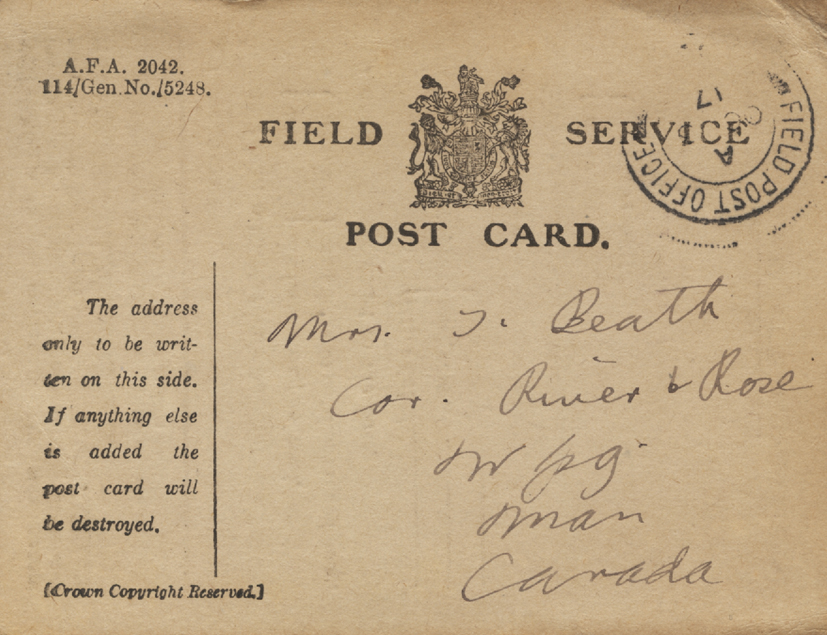 A.F.A. 2042.
114/Gen.No./5248.
FIELD SERVICE
POST CARD.
FIELD POST OFFICE
A
17
The address
only to be writ-
ten on this side.
If anything else
is added the
post card will
be destroyed.
[Crown Copyright Reserved.]
Mrs. J. Beath
Cor. River & Rose
Wpg.
Man
Canada